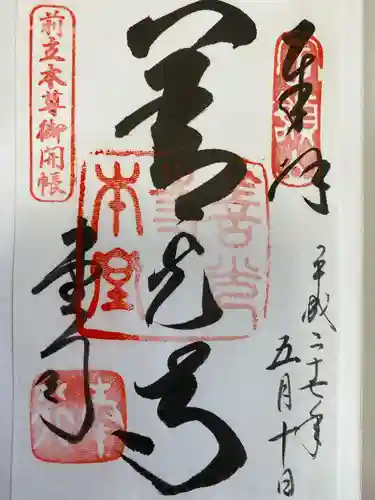 奉拝
平成二十七年
五月十日
善光寺
本堂
前立本尊御開帳